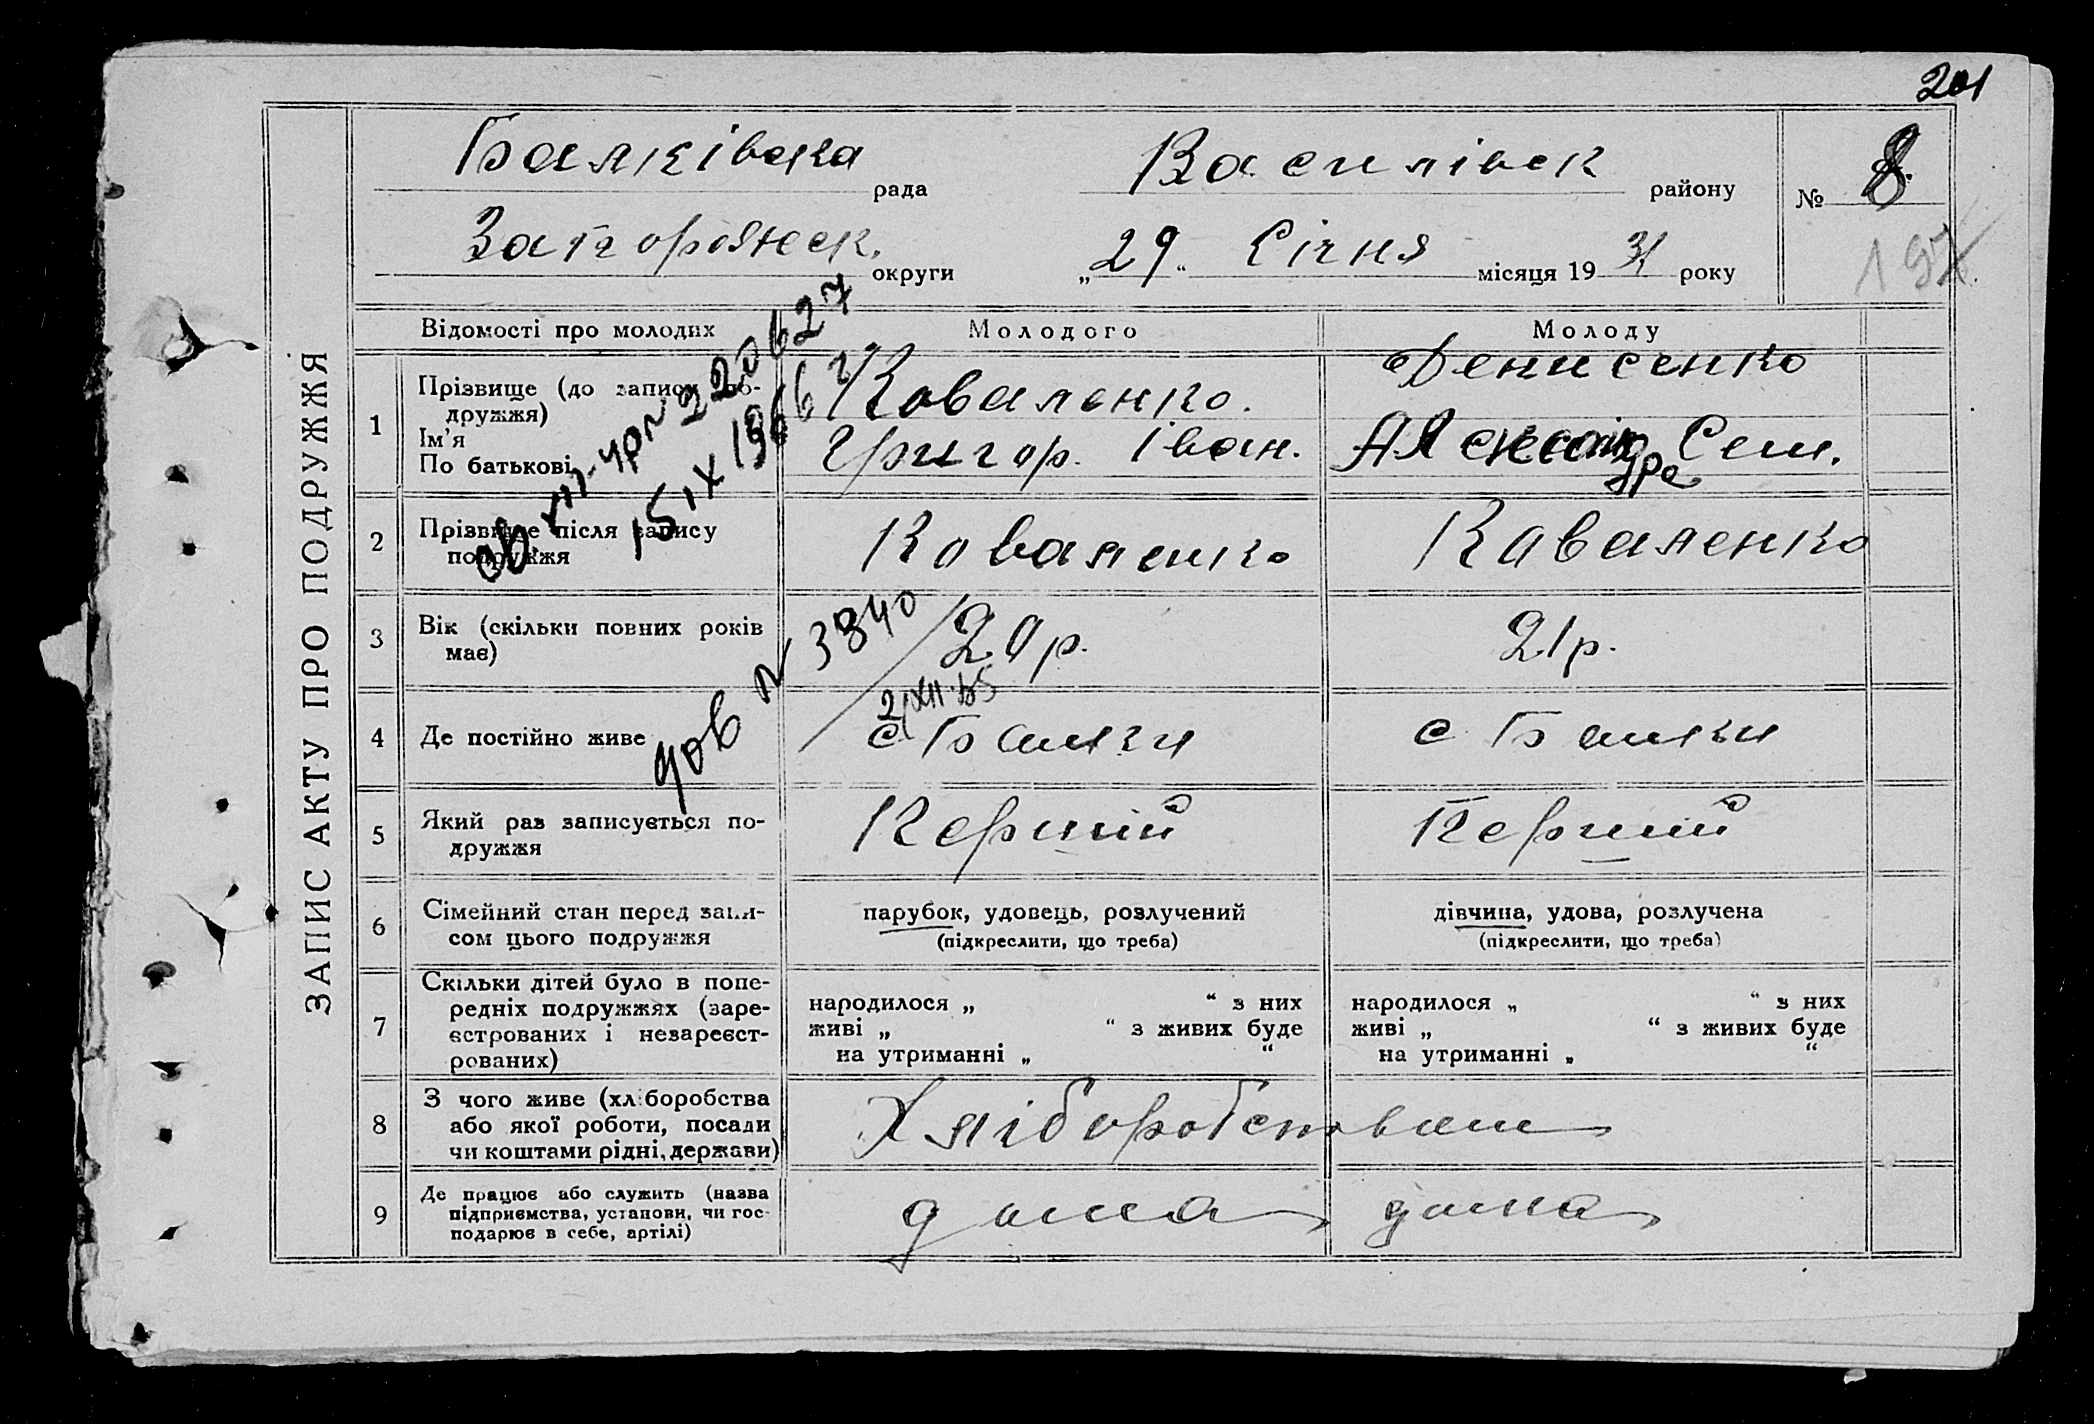 201
Балківська рада Василівск району № 8
Запоріжск. округи „29“ Січня місяця 1931 року
197
ЗАПИС АКТУ ПРО ПОДРУЖЖЯ
Відомості про молодих Молодого Молоду
1 Прізвище (до запису по-
дружжя)
Ім'я
По батькові
Коваленко.
Григор. Іван.
Денисенко
Сем.
2 Прізвище після запису
подружжя
Коваленко Каваленко
3 Вік (скільки повних років
має)
20р. 21р.
4 Де постійно живе с Балки с Балки
5 Який раз записується по-
дружжя
Перший Перший
6 Сімейний стан перед запи-
сом цього подружжя
парубок, удовець, розлучений
(підкреслити, що треба)
дівчина, удова, розлучена
(підкреслити, що треба)
7 Скільки дітей було в попе-
редніх подружжях (заре-
єстрованих і незареєст-
рованих)
народилося „ “ з них
живі „ “ з живих буде
на утриманні „ “
народилося „ “ з них
живі „ “ з живих буде
на утриманні „ “
8 З чого живе (хліборобства
або якої роботи, посади
чи коштами рідні, держави)
Хліборобством
9 Де працює або служить (назва
підприємства, установи, чи гос-
подарює в себе, артілі)
дома дома
220627
15 IX 1966 г
дов № 3840
2/XII·65